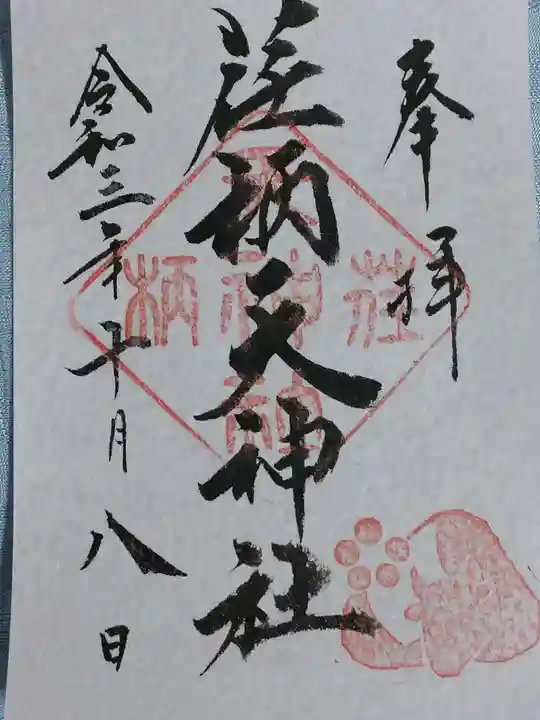 奉拝
荏柄天神社
令和三年十月八日
荏
柄
神